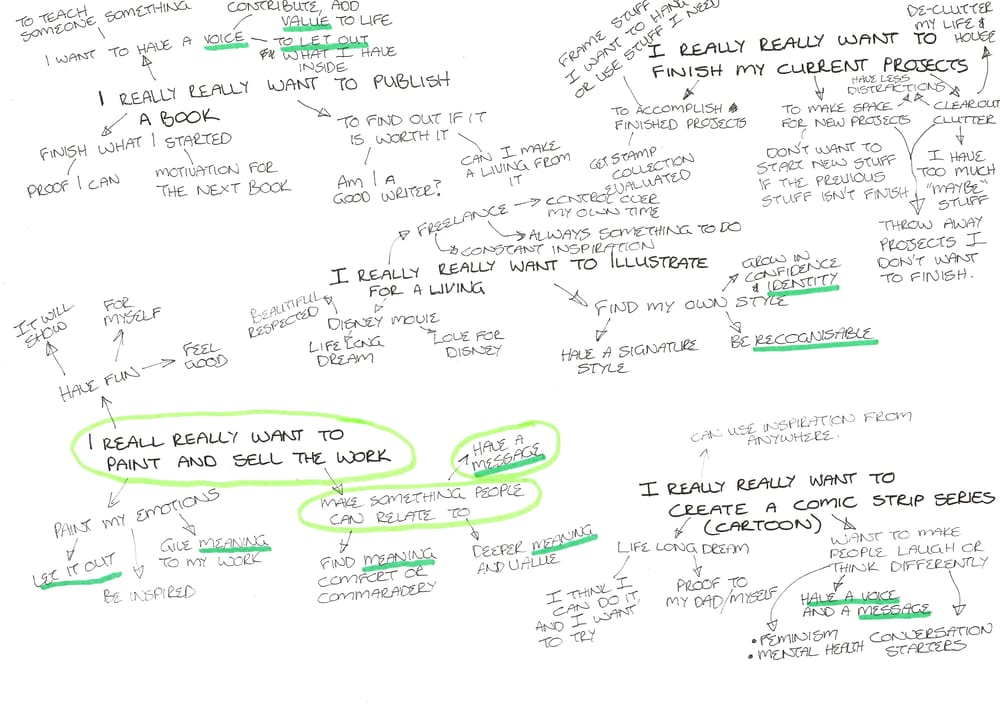 TO TEACH
SOMEONE SOMETHING
CONTRIBUTE, ADD
VALUE TO LIFE
I WANT TO HAVE A VOICE
TO LET OUT
WHAT I HAVE
INSIDE
I REALLY REALLY WANT TO PUBLISH
A BOOK
FINISH WHAT I STARTED
PROOF I CAN
MOTIVATION FOR
THE NEXT BOOK
TO FIND OUT IF IT
IS WORTH IT
AM I A
GOOD WRITER?
CAN I MAKE
A LIVING FROM
IT
FRAME STUFF
I WANT TO HANG
OR USE STUFF I NEED
I REALLY REALLY WANT TO
FINISH MY CURRENT PROJECTS
DE-CLUTTER
MY LIFE &
HOUSE
HAVE LESS
DISTRACTIONS
TO ACCOMPLISH
FINISHED PROJECTS
GET STAMP
COLLECTION
EVALUATED
TO MAKE SPACE
FOR NEW PROJECTS
CLEAROUT
CLUTTER
DON'T WANT TO
START NEW STUFF
IF THE PREVIOUS
STUFF ISN'T FINISH
I HAVE
TOO MUCH
"MAYBE"
STUFF
THROW AWAY
PROJECTS I
DON'T WANT
TO FINISH.
FREELANCE
CONTROL OVER
MY OWN TIME
ALWAYS SOMETHING TO DO
CONSTANT INSPIRATION
I REALLY REALLY WANT TO ILLUSTRATE
FOR A LIVING
BEAUTIFUL
RESPECTED
DISNEY MOVIE
LIFE LONG
DREAM
LOVE FOR
DISNEY
FIND MY OWN STYLE
GROW IN
CONFIDENCE
& IDENTITY
HAVE A SIGNATURE
STYLE
BE RECOGNISABLE
IT WILL
SHOW
FOR
MYSELF
FEEL
GOOD
HAVE FUN
I REALL REALLY WANT TO
PAINT AND SELL THE WORK
HAVE A
MESSAGE
MAKE SOMETHING PEOPLE
CAN RELATE TO
PAINT MY EMOTIONS
LET IT OUT
BE INSPIRED
GIVE MEANING
TO MY WORK
FIND MEANING
COMFORT OR
COMMARADERY
DEEPER MEANING
AND VALUE
CAN USE INSPIRATION FROM
ANYWHERE.
I REALLY REALLY WANT TO
CREATE A COMIC STRIP SERIES
(CARTOON)
LIFE LONG DREAM
I THINK I
CAN DO IT,
AND I WANT
TO TRY
PROOF TO
MY DAD/MYSELF
WANT TO MAKE
PEOPLE LAUGH OR
THINK DIFFERENTLY
HAVE A VOICE
AND A MESSAGE
• FEMINISM
• MENTAL HEALTH
CONVERSATION
STARTERS